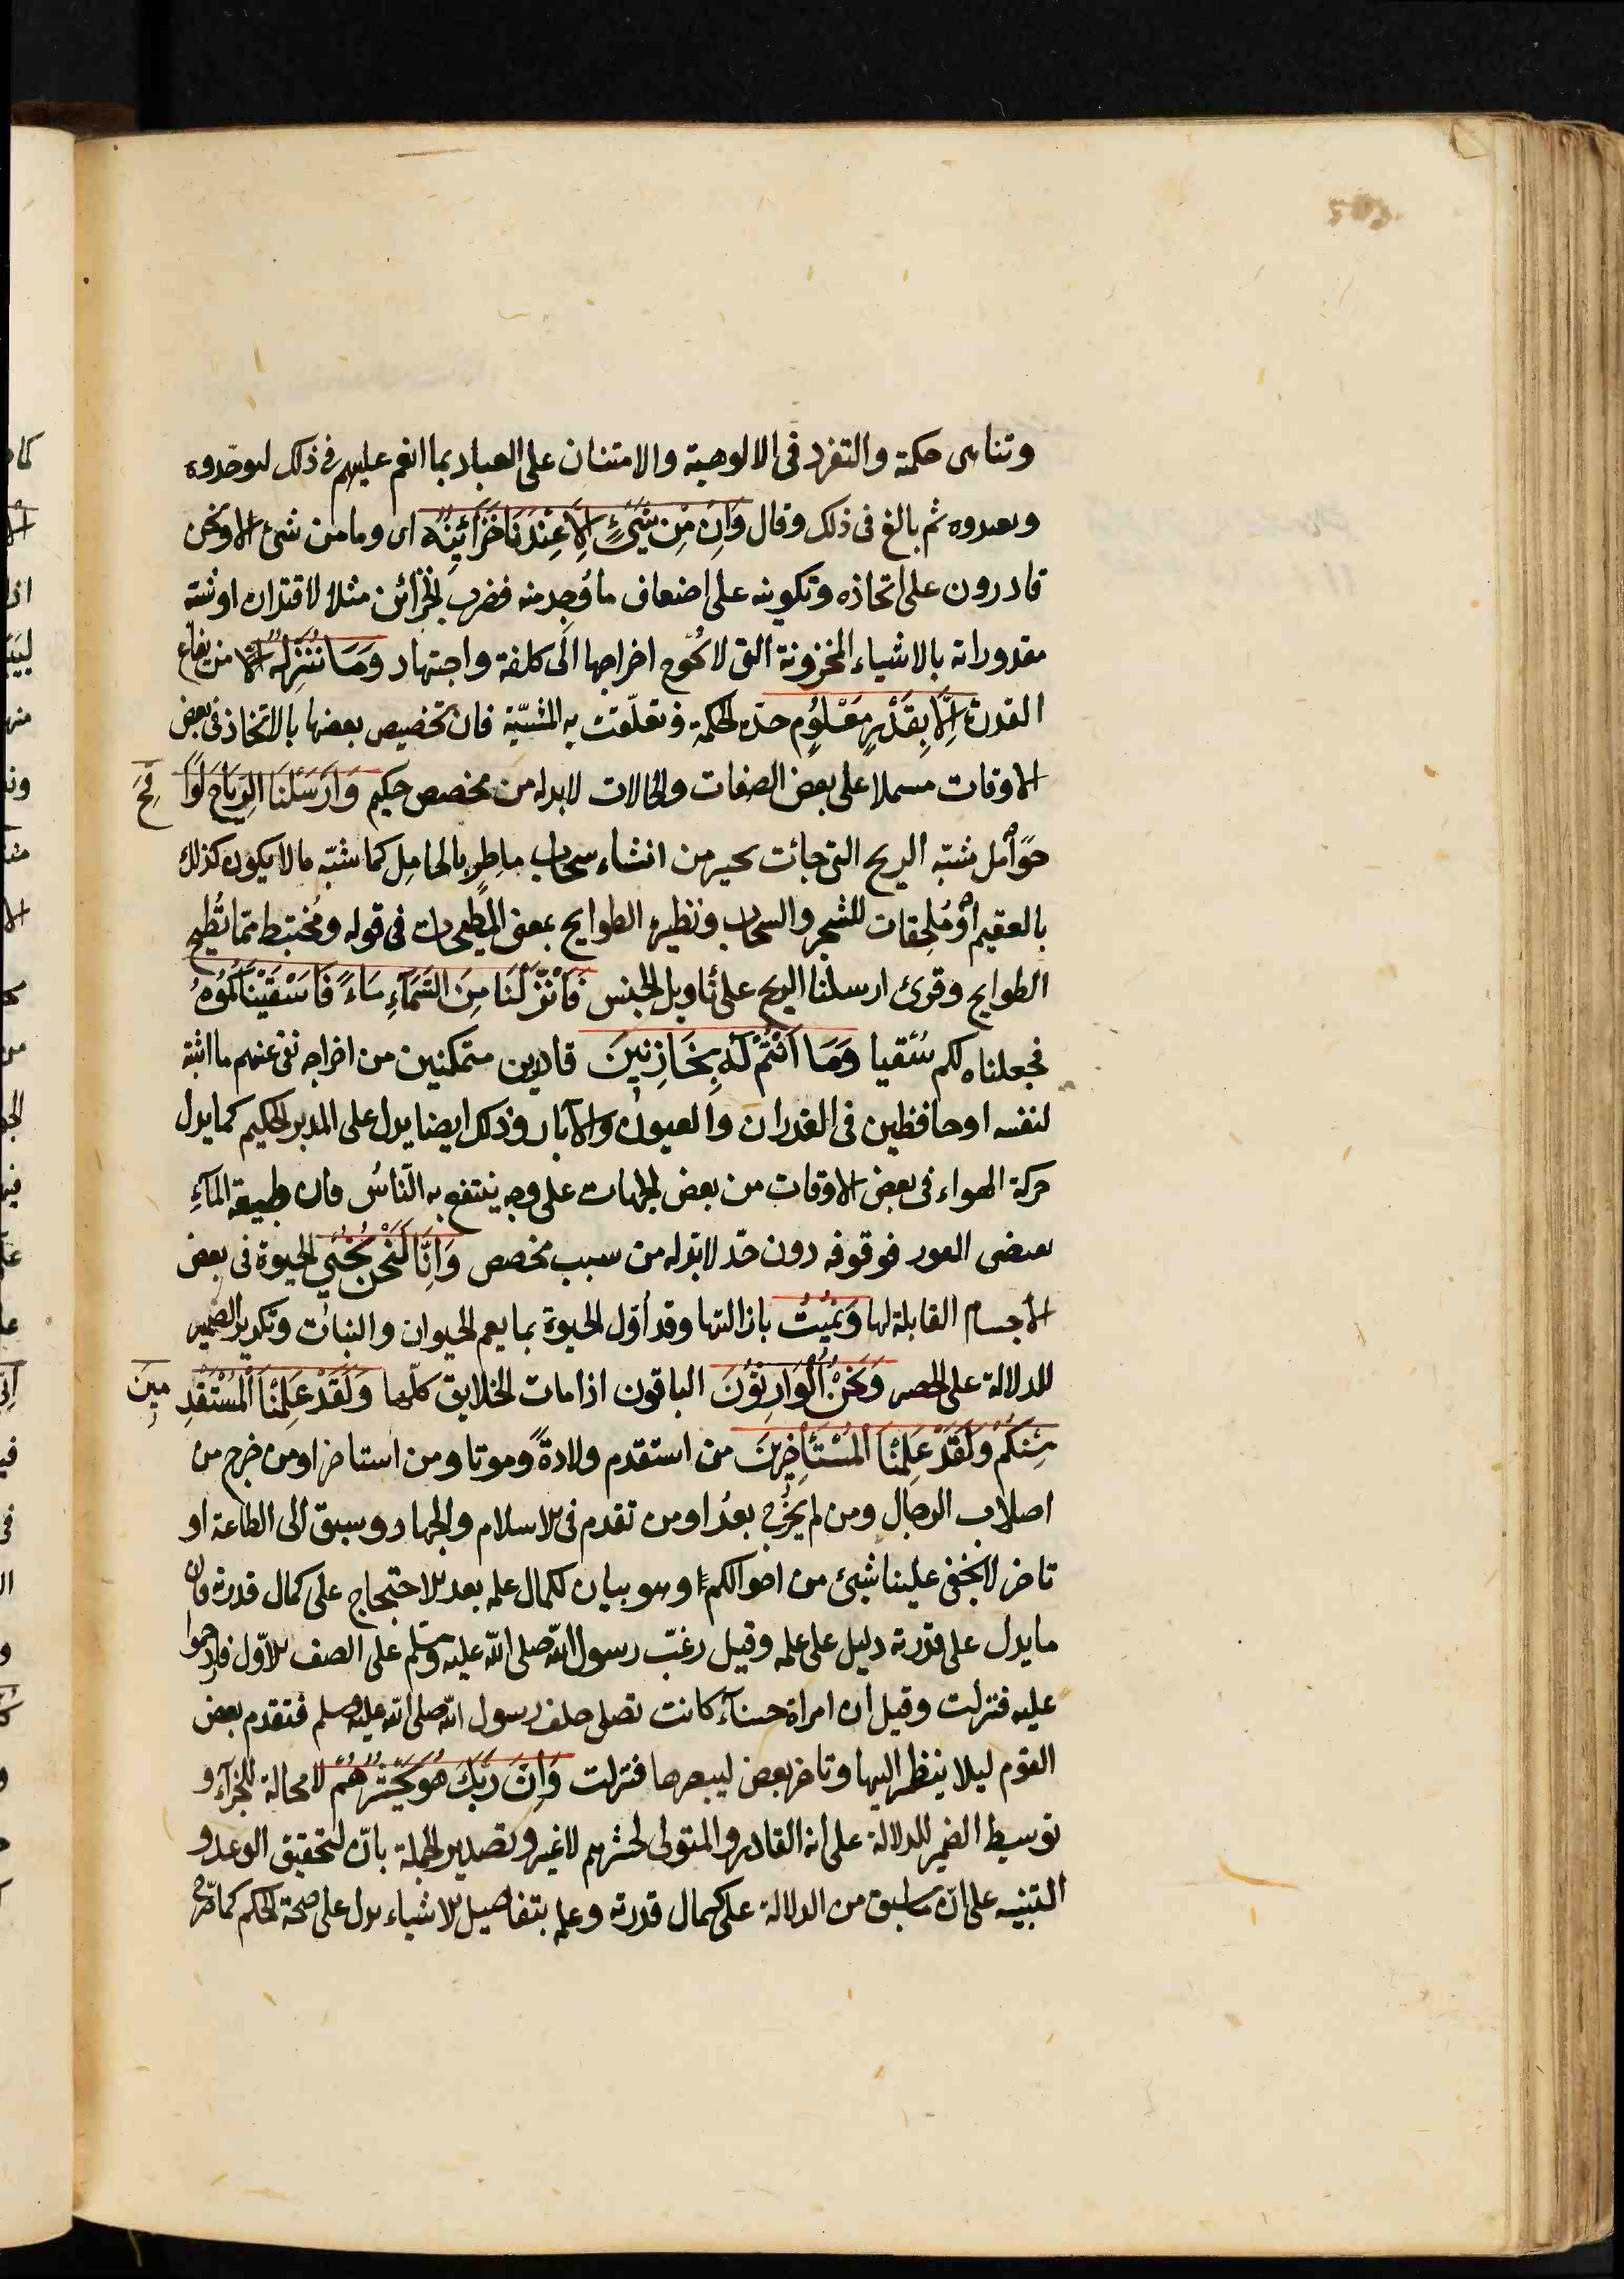 وتناهى حكمة والتفرد فى الالوهية والامتنان على العباد بما انعم عليهم فى ذلك ليوحّدوه
ويعبدوه ثم بالغ فى ذلك وقال وَاِنْ مِنْ شَيْءٍ اِلَّا عِنْدَنَا خَزَائِنُهُ اى وما من شئ الا ونحن
قادرون على اتخاذه وتكوينه على اضعاف ما وُجِد منه فضرب الخزائن مثلا لاقتداره او شبّه
مقدوراته بالاشياء المخزونة التى لا تُحوج اخراجها الى كلفة واجتهاد وَمَا نُنَزِّلُهُ الا من بقاع
القدرة اِلَّا بِقَدَرٍ مَعْلُومٍ حدّه الحكمة وتعلّقت به المشيّة فان تخصيص بعضها بالاتخاذ فى بعض
الاوقات مسملا على بعض الصفات والحالات لابدله من مخصص حكيم وَاَرْسَلْنَا الرِيَاحَ لَوَاقِحَ
حَوَامل شبّه الريح التى جائت بخير من انشاء سحاب ماطِرٍ بالحامِل كما شبّه ما لا يكون كذلك
بالعقيم اَوْ مُلقِحَات للشجر والسحاب ونظيره الطوايح بمعنى المطيحات فى قوله ومُختبط مما تُطيح
الطوايح وقرئ ارسلنا الريح على تأويل الجنس فَاَنْزَلْنَا مِنَ السَّمَاءِ مَاءً فَاَسْقَيْنَاكُمُوهُ
فجعلناه لكم سُقيا وَمَا اَنْتُمْ لَهُ بِخَازِنِينَ قادرين متمكنين من اخراجه نفى عنهم ما اثبته
لنفسه او حافظين فى الغدران والعيون والآبار وذلك ايضا يدل على المدبر الحكيم كما يدل
حركة الهواء فى بعض الاوقات من بعض الجهات على وجه ينتفع به النّاسُ فان طبيعة المآءِ
يقتضى الغور فوقوفه دون حدّ لابدّله من سبب مخصص وَاِنَّا لَنَحْنُ نُحْيِي الحيوة فى بعض
الاجسام القابلة لها وَنُمِيتُ بازالتها وقد اُوّل الحيوة بما يعم الحيوان والنبات وتكرير الضمير
للدلالة على الحصر وَنَحْنُ الْوَارِثُونَ الباقون اذا مات الخلايق كلّها وَلَقَدْ عَلِمْنَا الْمُسْتَقْدِمِينَ
مِنْكُمْ وَلَقَدْ عَلِمْنَا الْمُسْتَأْخِرِينَ من استقدم ولادةً وموتا ومن استاخر او من خرج من
اصلاب الرجال ومن لم يخرج بعدُ او من تقدم فى الاسلام والجهاد وسبق الى الطاعة او
تاخر لا يخفى علينا شئ من احوالكم وهو بيان لكمال علمه بعد الاحتجاج على كمال قدرته فان
ما يدل على قدرته دليل على علمه وقيل رغّب رسول الله صلى الله عليه وسلم على الصف الاوّل فازدحموا
عليه فنزلت وقيل ان امراة حسنآء كانت تصلى خلف رسول الله صلى الله عليه وسلم فتقدم بعض
القوم ليلا ينظر اليها وتاخر بعض ليبصرها فنزلت وَاِنَّ رَبَّكَ هُوَ يَحْشُرُهُمْ لا محالة للجزآء و
توسيط الضمير للدلالة على انه القادر والمتولى لحشرهم لا غير وتصدير الجملة بانّ لتحقيق الوعد و
التنبيه على انّ ما سبق من الدلالة على كمال قدرته وعلمه بتفاصيل الاشياء يدل على صحة الحكم كما صُرّح